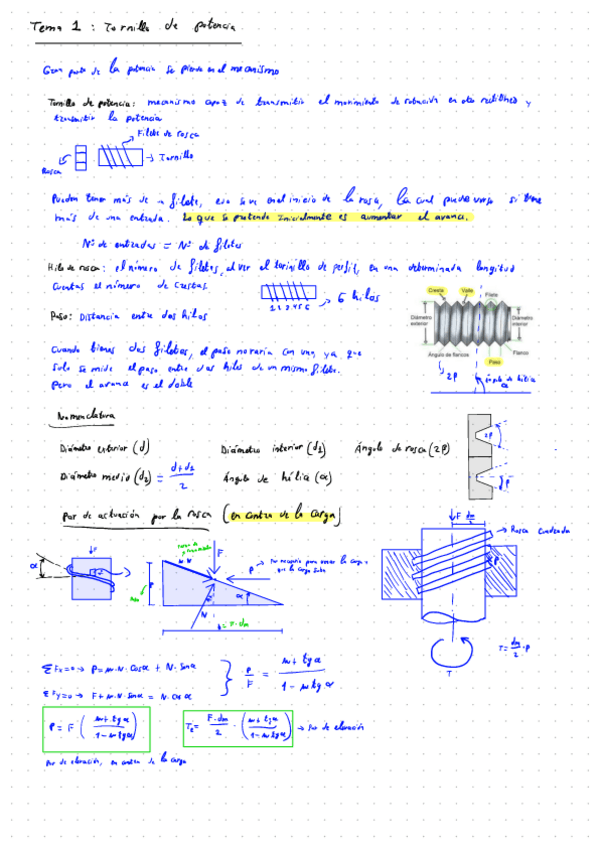 Tema 1 : Tornillo de potencia
Gran parte de la potencia se pierde en el mecanismo
Tornillo de potencia: mecanismo capaz de transmitir el movimiento de rotación en otro rectilíneo y
transmitir la potencia
Filete de rosca
Rosca
Tornillo
Pueden tener más de un filete, eso se ve en el inicio de la rosca, la cual puede verse si tiene
más de una entrada. Lo que se pretende inicialmente es aumentar el avance.
Nº de entradas = Nº de filetes
Hilo de rosca: el número de filetes, al ver el tornillo de perfil, en una determinada longitud
cuentas el número de crestas.
1 2 3 4 5 6
6 hilos
Paso: Distancia entre dos hilos
Cresta
Valle
Filete
Diámetro exterior
Diámetro interior
Ángulo de flancos
Paso
Flanco
2β
ángulo de hélice
α
Cuando tienes dos filetes, el paso no varía
solo se mide el paso entre dos hilos de un mismo filete.
Pero el avance es el doble
Nomenclatura
Diámetro exterior (d)
Diámetro interior (d1)
Ángulo de rosca (2β)
Diámetro medio (d2) = d+d1 / 2
Ángulo de hélice (α)
2β
β
Par de actuación por la rosca (en contra de la carga)
F dm/2
Rosca cuadrada
α
F
P
N
α
b = π·dm
P necesaria para mover la carga
que la carga suba
T = dm/2 · P
T
ΣFx=0 → P = μ·N·cosα + N·sinα
ΣFy=0 → F + μ·N·sinα = N·cosα
P/F = μ + tgα / 1 - μ tgα
P = F ( μ + tgα / 1 - μ tgα )
TE = F·dm / 2 · ( μ + tgα / 1 - μ tgα ) → Par de elevación
Par de elevación, en contra de la carga